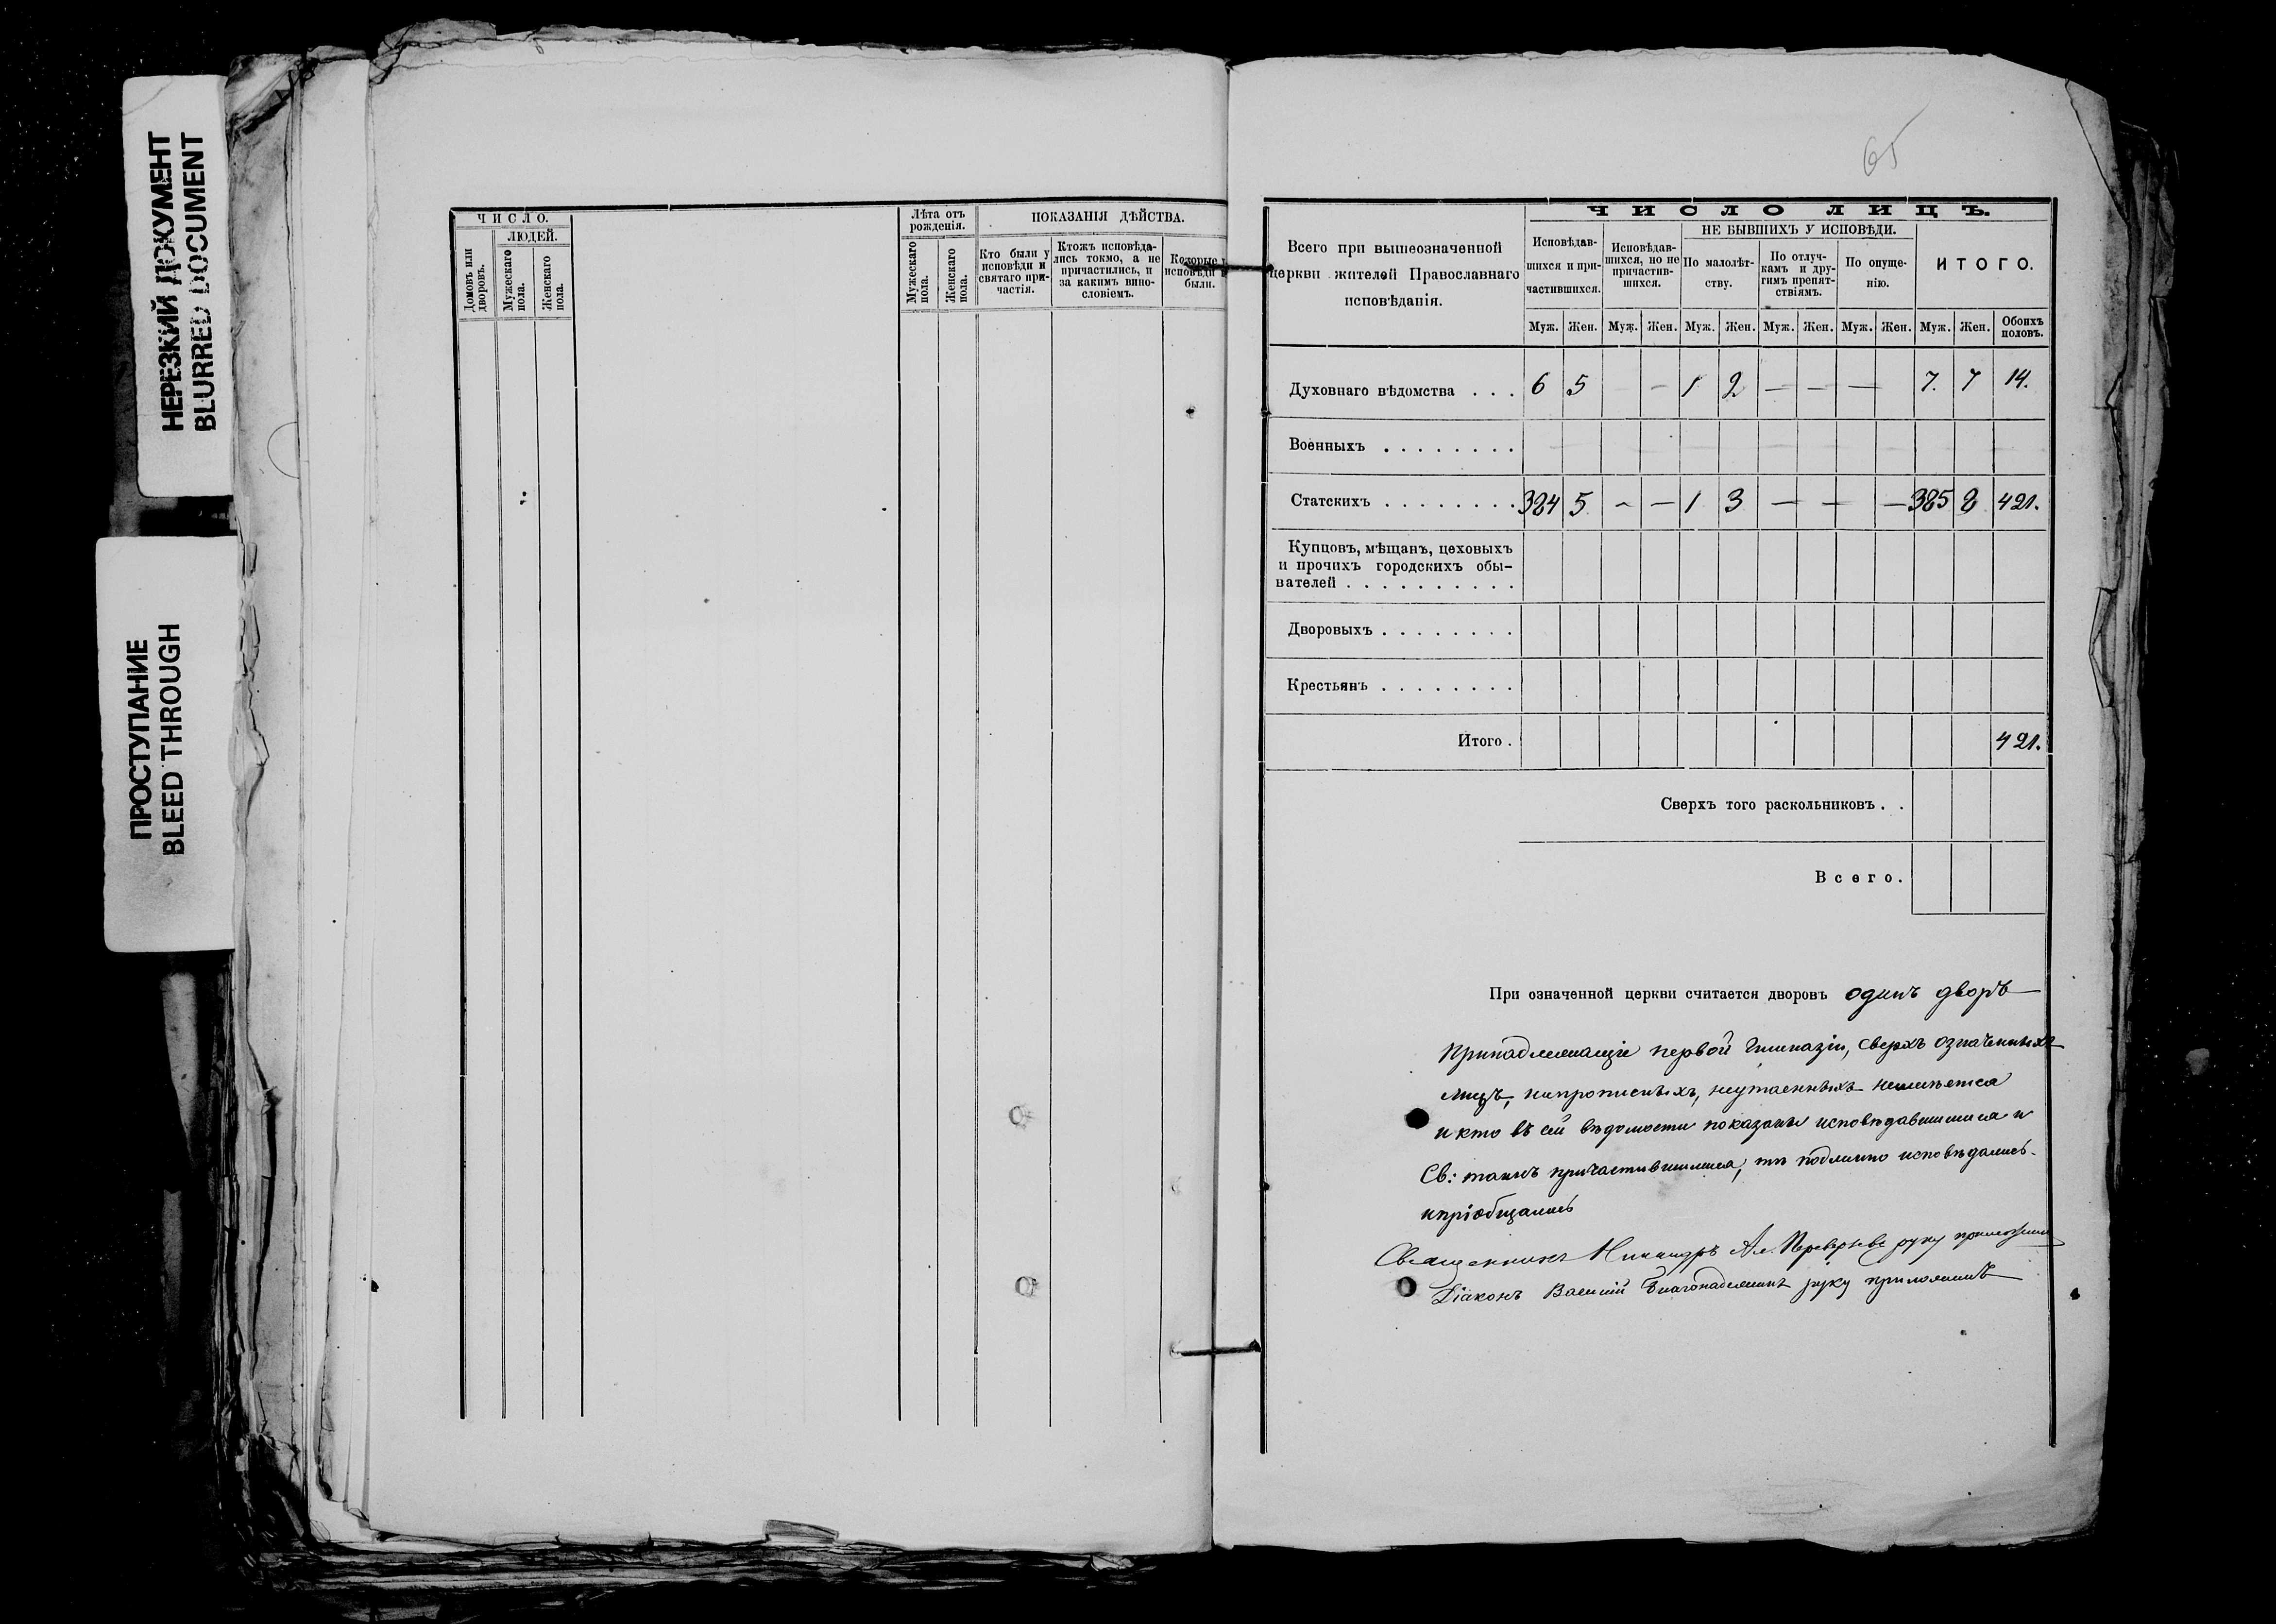 НЕРЕЗКИЙ ДОКУМЕНТ
BLURRED DOCUMENT
ПРОСТУПАНИЕ
BLEED THROUGH
ЧИСЛО.
ЛЮДЕЙ.
Домовъ или дворовъ.
Мужескаго пола.
Женскаго пола.
Лѣта отъ рожденія.
Мужескаго пола.
Женскаго пола.
ПОКАЗАНІЯ ДѢЙСТВА.
Кто были у исповѣди и святаго при-частія.
Ктожъ исповѣда-лись токмо, а не причастились, и за какимъ вино-словіемъ.
Которые исповѣди были.
65
Всего при вышеозначенной
церкви жителей Православнаго
исповѣданія.
ЧИСЛО ЛИЦЪ.
Исповѣдав-шихся и при-частившихся.
Исповѣдав-шихся, но не причастив-шихся.
НЕ БЫВШИХЪ У ИСПОВѢДИ.
По малолѣт-ству.
По отлуч-камъ и дру-гимъ препят-ствіямъ.
По опуще-нію.
ИТОГО.
Муж. Жен. Муж. Жен. Муж. Жен. Муж. Жен. Муж. Жен. Муж. Жен. Обоихъ половъ.
Духовнаго вѣдомства . . . 6 5 – 1 2 — — — 7. 7 14.
Военныхъ . . . . . . . .
Статскихъ . . . . . . . . 5 – – 1 3 — — — 8 421.
Купцовъ, мѣщанъ, цеховыхъ
и прочихъ городскихъ обы-
вателей . . . . . . . . . .
Дворовыхъ . . . . . . . .
Крестьянъ . . . . . . . .
Итого . 421.
Сверхъ того раскольниковъ . .
Всего.
При означенной церкви считается дворовъ одинъ дворъ
принадлежащіе первой Гимназіи, сверхъ означенныхъ
лицъ, непрописныхъ, неутаенныхъ неимѣется
и кто въ сей вѣдомости показаны исповѣдавшимися и
Св: таинъ причастившимися, тѣ подлинно исповѣдались
и пріобщались
Священникъ руку приложилъ
Діаконъ Василій руку приложилъ